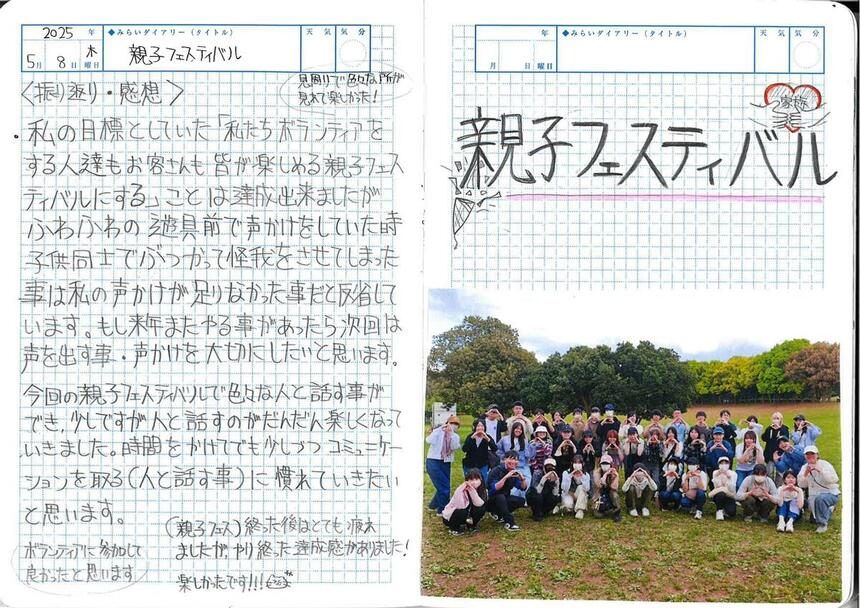 2025 年
5月 8日 木曜日
◆みらいダイアリー（タイトル）
親子フェスティバル
天気
気分
〈振り返り・感想〉
見周りで色々な所が
見れて楽しかった！
・私の目標としていた「私たちボランティアを
する人達もお客さんも皆が楽しめる親子フェス
ティバルにする」ことは達成出来ましたが
ふわふわの遊具前で声かけをしていた時
子供同士でぶつかって怪我をさせてしまった
事は私の声かけが足りなかった事だと反省して
います。もし来年またやる事があったら次回は
声を出す事・声かけを大切にしたいと思います。
今回の親子フェスティバルで色々な人と話す事が
でき、少しですが人と話すのがだんだん楽しくなって
いきました。時間をかけてでも少しづつコミュニケー
ションを取る（人と話す事）に慣れていきたい
と思います。
（親子フェス）終った後はとても疲れ
ましたが、やり終った達成感がありました！
楽しかったです!!!
ボランティアに参加して
良かったと思います
年
月 日 曜日
◆みらいダイアリー（タイトル）
天気
気分
家族
親子フェスティバル